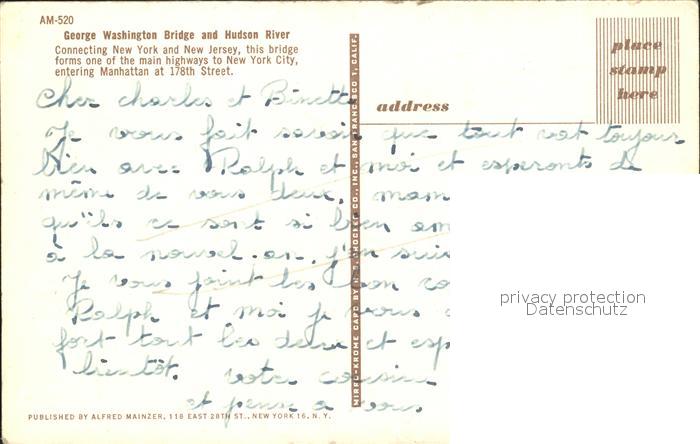 AM-520
George Washington Bridge and Hudson River
Connecting New York and New Jersey, this bridge
forms one of the main highways to New York City,
entering Manhattan at 178th Street.
place
stamp
here
address
Cher charles et Binette
Je vous fait savoir que tout vat toujour
bien avec Ralph et moi et esperonts de
même de vous deux, mam
qu'ils ce sont si bien am
à la nouvel-an, j'en suis
Je vous joint les bon
Ralph et moi je vous
fort tout les deux et esp
bientôt. votre cousine
et pense a vous
MIRRO-KROME CARD BY H. S. CROCKER CO., INC., SAN FRANCISCO 1, CALIF.
PUBLISHED BY ALFRED MAINZER, 118 EAST 28TH ST., NEW YORK 16, N. Y.
privacy protection
Datenschutz